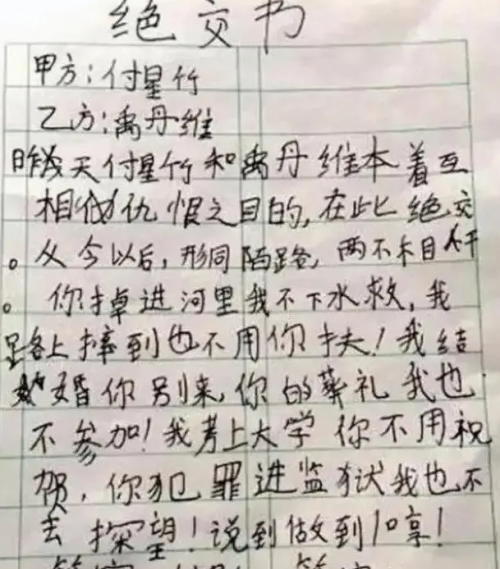 绝交书
甲方:付星竹
乙方:禹丹维
昨天付星竹和禹丹维本着互
相仇恨之目的,在此绝交
。从今以后,形同陌路,两不相干
。你掉进河里我不下水救,我
路上摔到也不用你扶!我结
婚你别来,你的葬礼我也
不参加!我考上大学你不用祝
贺,你犯罪进监狱我也不
去探望!说到做到!哼!